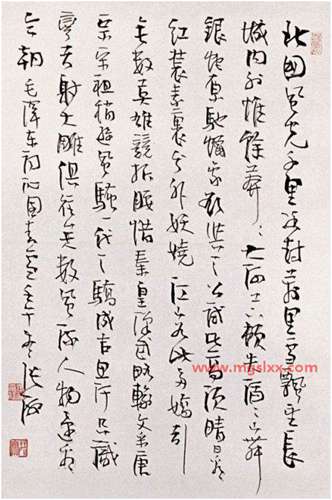 北国风光千里冰封萬里雪飘望长
城内外惟餘莽莽大河上下顿失滔滔山舞
银蛇原驰蠟象欲与天公试比高须晴日看
红装素裹分外妖娆江山如此多娇引
无数英雄競折腰惜秦皇漢武略输文采唐
宗宋祖稍逊风骚一代天骄成吉思汗只識
彎弓射大雕俱往矣数风流人物还看
今朝 毛泽东词沁園春雪 壬午冬 张海
www.mgslxx.com